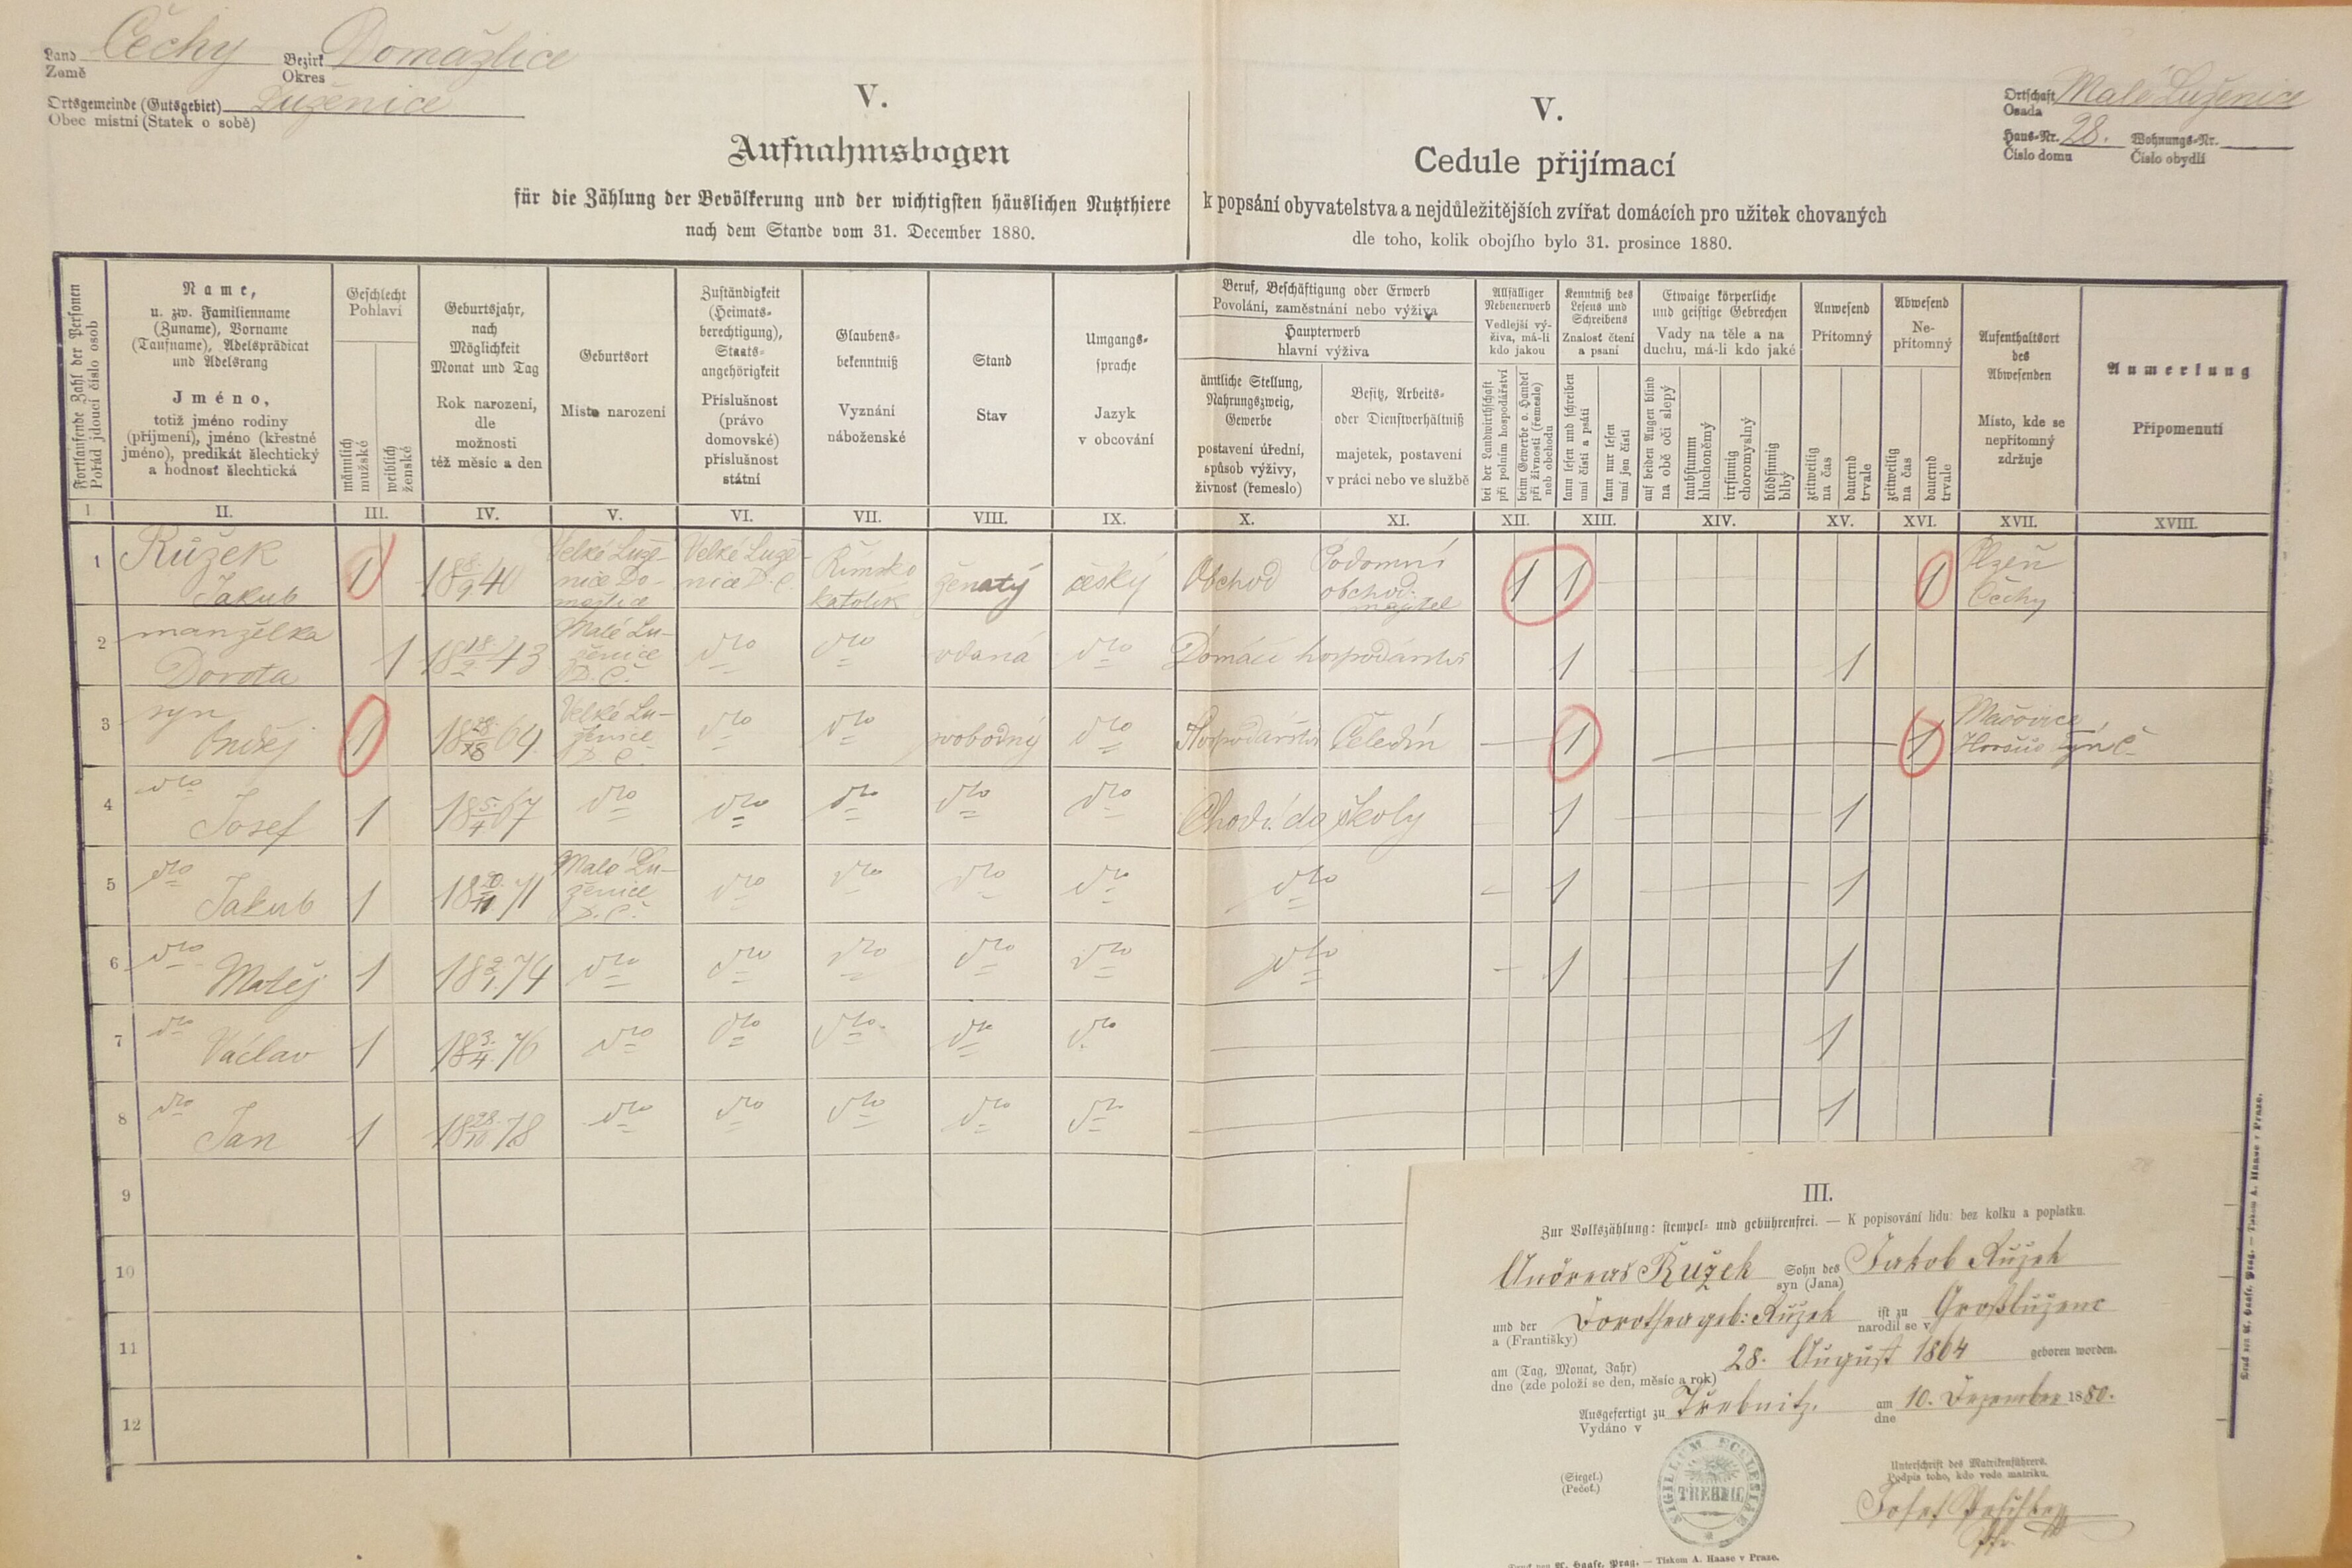 Land Čechy Bezirk Domažlice
Země Okres
Ortsgemeinde (Gutsgebiet) Luženice
Obec místní (Statek o sobě)
Ortschaft Malé Luženice
Osada
Haus-Nr. 28. Wohnungs-Nr.
Číslo domu Číslo obydlí
V.
Aufnahmsbogen
für die Zählung der Bevölkerung und der wichtigsten häuslichen Nutzthiere
nach dem Stande vom 31. December 1880.
V.
Cedule přijímací
k popsání obyvatelstva a nejdůležitějších zvířat domácích pro užitek chovaných
dle toho, kolik obojího bylo 31. prosince 1880.
Fortlaufende Zahl der Personen
Pořád jdoucí číslo osob
Name,
u. zw. Familienname
(Zuname), Vorname
(Taufname), Adelsprädicat
und Adelsrang
Jméno,
totiž jméno rodiny
(příjmení), jméno (křestné
jméno), predikát šlechtický
a hodnost šlechtická
Geschlecht
Pohlaví
männlich
mužské
weiblich
ženské
Geburtsjahr,
nach
Möglichkeit
Monat und Tag
Rok narození,
dle
možnosti
též měsíc a den
Geburtsort
Místo narození
Zuständigkeit
(Heimats-
berechtigung),
Staats-
angehörigkeit
Příslušnost
(právo
domovské)
příslušnost
státní
Glaubens-
bekenntniß
Vyznání
náboženské
Stand
Stav
Umgangs-
sprache
Jazyk
v obcování
Beruf, Beschäftigung oder Erwerb
Povolání, zaměstnání nebo výživa
Haupterwerb
hlavní výživa
ämtliche Stellung,
Nahrungszweig,
Gewerbe
postavení úřední,
spůsob výživy,
živnost (řemeslo)
Besitz, Arbeits-
oder Dienstverhältniß
majetek, postavení
v práci nebo ve službě
Allfälliger
Nebenerwerb
Vedlejší vý-
živa, má-li
kdo jakou
bei der Landwirthschaft
při polním hospodářství
beim Gewerbe o. Handel
při živnosti (řemesle)
neb obchodu
Kenntniß des
Lesens und
Schreibens
Znalost čtení
a psaní
kann lesen und schreiben
umí čísti a psáti
kann nur lesen
umí jen čísti
Etwaige körperliche
und geistige Gebrechen
Vady na těle a na
duchu, má-li kdo jaké
auf beiden Augen blind
na obě oči slepý
taubstumm
hluchoněmý
irrsinnig
choromyslný
blödsinnig
blbý
Anwesend
Přítomný
zeitweilig
na čas
dauernd
trvale
Abwesend
Ne-
přítomný
zeitweilig
na čas
dauernd
trvale
Aufenthaltsort
des
Abwesenden
Místo, kde se
nepřítomný
zdržuje
Anmerkung
Připomenutí
I II. III. IV. V. VI. VII. VIII. IX. X. XI. XII. XIII. XIV. XV. XVI. XVII. XVIII.
1 Růžek Jakub 1 18 8/9 40 Velké Luže-nice Do-mažlice Velké Luže-nice D. Č. Římsko katolík ženatý český Obchod Podomní obchod. majitel 1 1 1 Plzeň Čechy
2 manželka Dorota 1 18 18/2 43 Malé Lu-ženice D. Č. dto dto vdaná dto Domácí hospodářství 1 1
3 syn Ondřej 1 18 28/8 64 Velké Lu-ženice D. Č. dto dto svobodný dto Hospodářství Čeledín 1 1 Mašovice Horšův Týn Č.
4 dto Josef 1 18 5/4 67 dto dto dto dto dto Chodí do školy 1 1
5 dto Jakub 1 18 20/11 71 Malé Lu-ženice D. Č. dto dto dto dto dto 1 1
6 dto Matěj 1 18 2/1 74 dto dto dto dto dto dto 1 1
7 dto Václav 1 18 3/4 76 dto dto dto dto dto 1
8 dto Jan 1 18 28/10 78 dto dto dto dto dto 1
9
10
11
12
III.
Zur Volkszählung: stempel- und gebührenfrei. — K popisování lidu: bez kolku a poplatku.
Andreas Růžek Sohn des Jakob Růžek
syn (Jana)
und der Dorothea geb: Růžek ist zu Großluženic
a (Františky) narodil se v
am (Tag, Monat, Jahr) 28. August 1864 geboren worden.
dne (zde položí se den, měsíc a rok)
Ausgefertigt zu Trebnitz. am 10. Dezember 1880.
Vydáno v dne
(Siegel.)
(Pečeť.)
SIGILLUM ECCLESIAE
Unterschrift des Matrikenführers.
Podpis toho, kdo vede matriku.
Josef
Druck von A. Haase, Prag. — Tiskom A. Haase v Praze.
Druck von A. Haase, Prag. — Tiskom A. Haase v Praze.